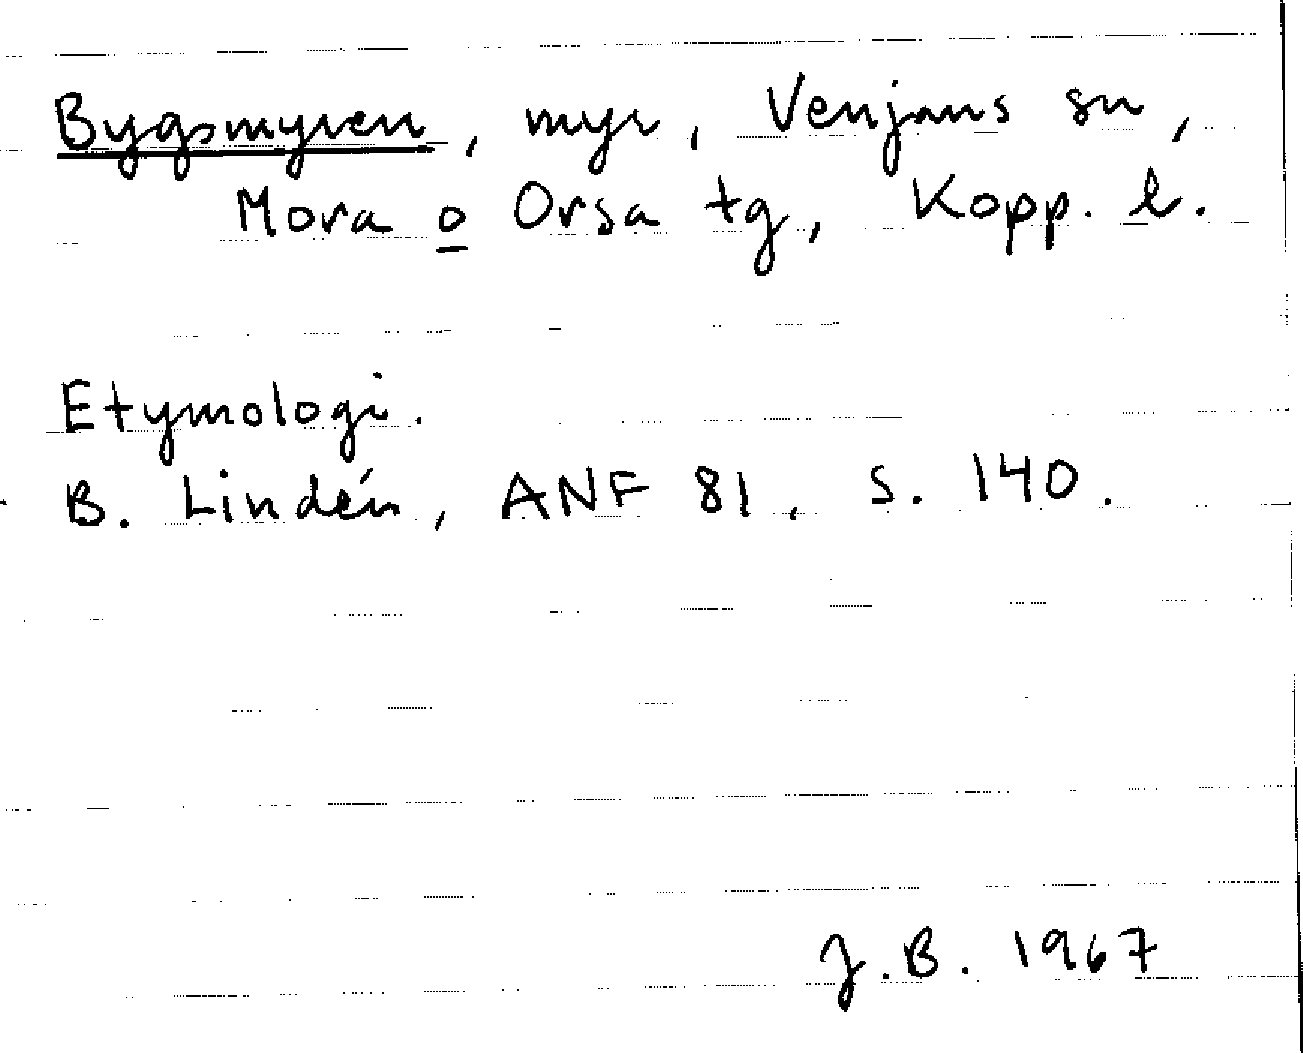 Bygsmyren, myr, Venjans sn,
Mora o Orsa tg, Kopp. l.
Etymologi.
B. Lindén, ANF 81, s. 140.
J.B. 1967